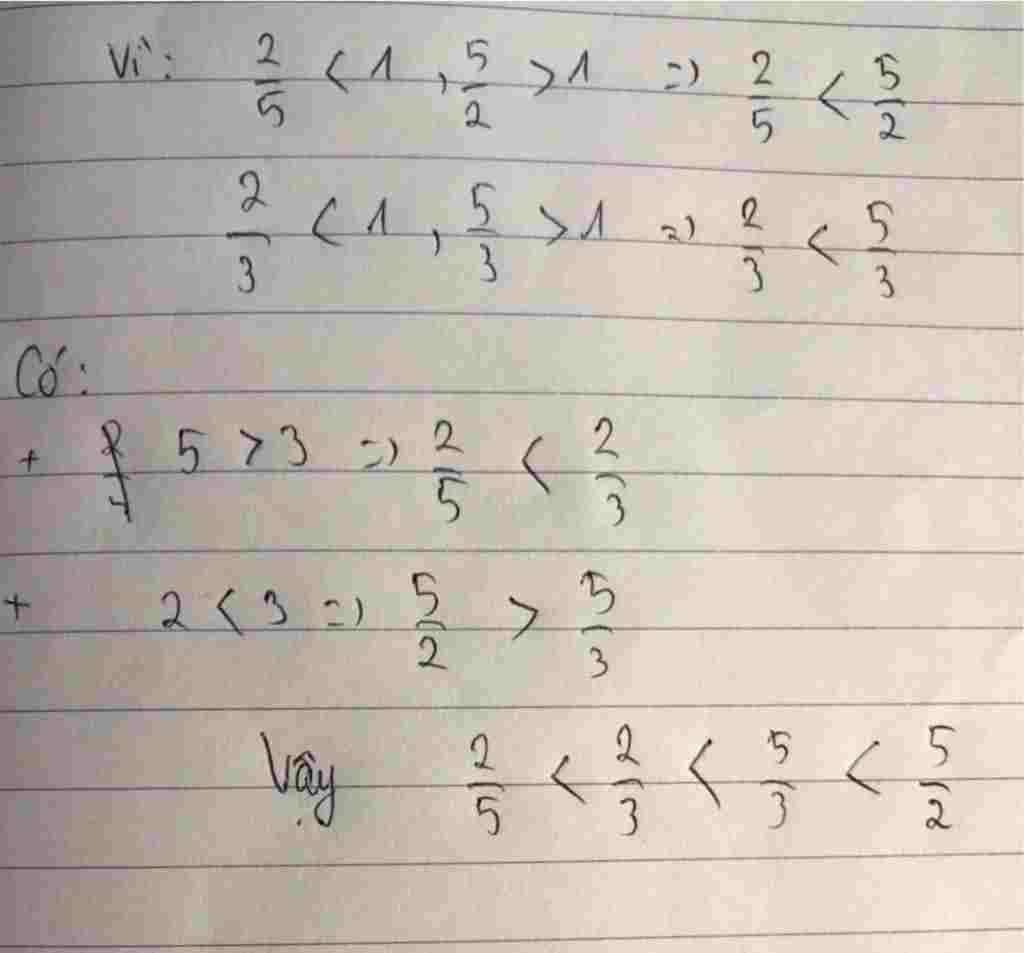 Vì: 2/5 < 1, 5/2 > 1 => 2/5 < 5/2
2/3 < 1, 5/3 > 1 => 2/3 < 5/3
Có:
+ 5 > 3 => 2/5 < 2/3
+ 2 < 3 => 5/2 > 5/3
Vậy 2/5 < 2/3 < 5/3 < 5/2